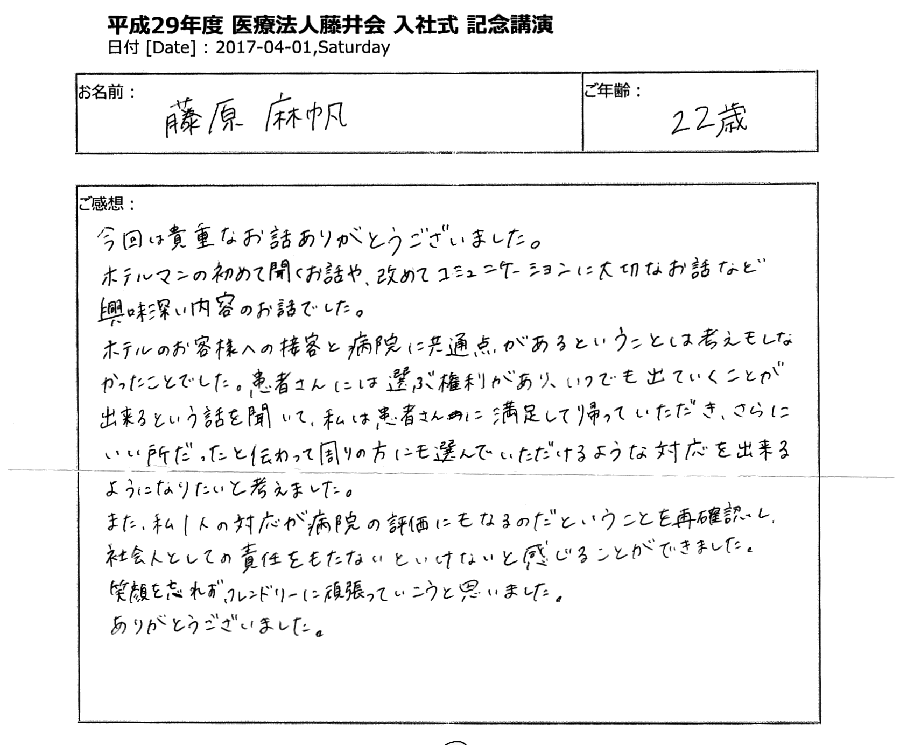 平成29年度 医療法人藤井会 入社式 記念講演
日付 [Date] : 2017-04-01,Saturday
お名前：
藤原 麻帆
ご年齢：
22歳
ご感想：
今回は貴重なお話ありがとうございました。
ホテルマンの初めて聞くお話や、改めてコミュニケーションに大切なお話など
興味深い内容のお話でした。
ホテルのお客様への接客と病院に共通点があるということは考えもしな
かったことでした。患者さんには選ぶ権利があり、いつでも出ていくことが
出来るという話を聞いて、私は患者さんに満足して帰っていただき、さらに
いい所だったと伝わって周りの方にも選んでいただけるような対応を出来る
ようになりたいと考えました。
また、私1人の対応が病院の評価にもなるのだということを再確認し、
社会人としての責任をもたないといけないと感じることができました。
笑顔を忘れず、フレンドリーに頑張っていこうと思いました。
ありがとうございました。